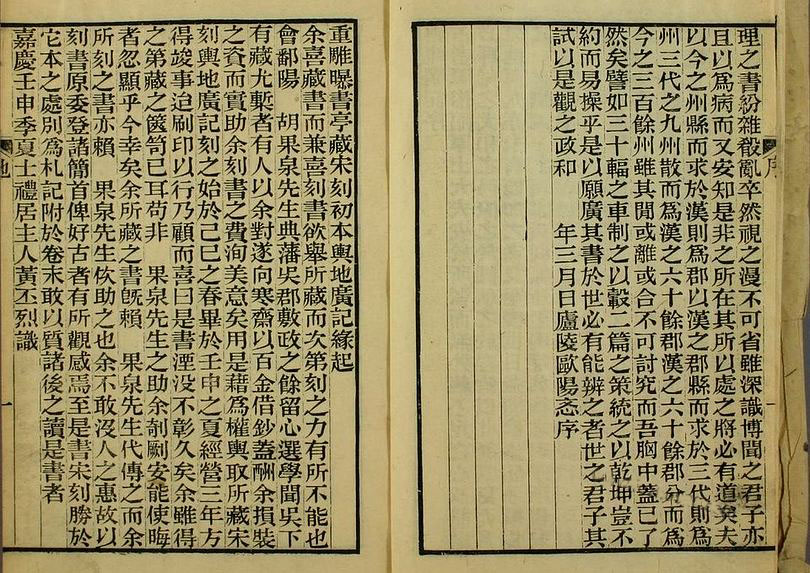 理之書紛雜殽亂卒然視之漫不可省雖深識博聞之君子亦
且以爲病而又安知是非之所在其所以處之將必有道矣夫
以今之州縣而求於漢則爲郡以漢之郡縣而求於三代則爲
州三代之九州散而爲漢之六十餘郡漢之六十餘郡分而爲
今之三百餘州雖其閒或離或合不可討究而吾胸中蓋已了
然矣譬如三十輻之車制之以轂二篇之策統之以乾坤豈不
約而易操乎是以願廣其書於世必有能辨之者世之君子其
試以是觀之政和 年三月日廬陵歐陽忞序
序
重雕曝書亭藏宋刻初本輿地廣記緣起
余喜藏書而兼喜刻書欲舉所藏而次第刻之力有所不能也
會鄱陽 胡果泉先生典藩吳郡敷政之餘留心選學聞吳下
有藏尤槧者有人以余對遂向寒齋以百金借鈔蓋酬余損裝
之資而實助余刻書之費洵美意矣用是藉爲權輿取所藏宋
刻輿地廣記刻之始於己巳之春畢於壬申之夏經營三年方
得竣事迨刷印以行乃顧而喜曰是書湮没不彰久矣余雖得
之第藏之篋笥已耳苟非 果泉先生之助余剞劂安能使晦
者忽顯乎今幸矣余所藏之書旣賴 果泉先生代傳之而余
所刻之書亦賴 果泉先生佽助之也余不敢沒人之惠故以
刻書原委登諸簡首俾好古者有所觀感焉至是書宋刻勝於
它本之處別爲札記附於卷末敢以質諸後之讀是書者
嘉慶壬申季夏士禮居主人黃丕烈識